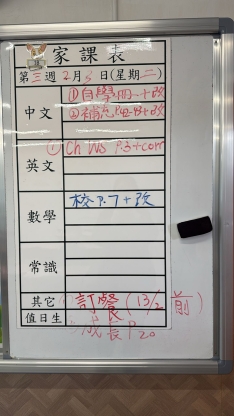 家課表
第三週2月3日(星期二)
中文 ①自學冊一+改
②補充P.5-8+改
英文 ① Ch WS P.3+corr
數學 校P.7+改
常識
其它 訂餐(13/2前)
值日生 成長P20